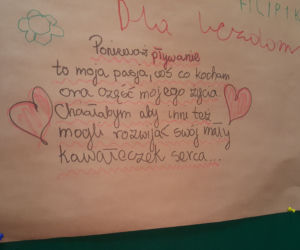 FILIPIK
Dla
Ponieważ pływanie
to moja pasja, coś co kocham
oraz część mojego życia.
Chciałabym aby inni też
mogli rozwijać swój mały
kawałeczek serca...